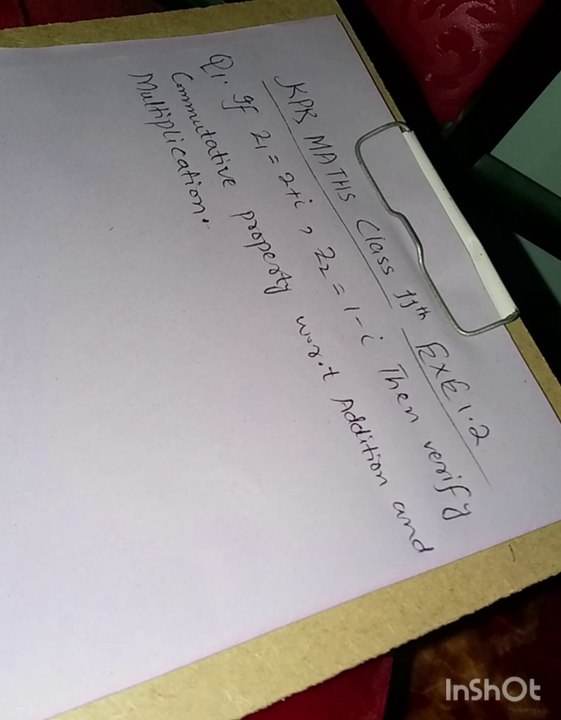 KPK MATHS Class 11th EXE 1.2
Q1. If z1 = 2+i, z2 = 1-i Then verify
Commutative property w.r.t Addition and
Multiplication.
InShOt